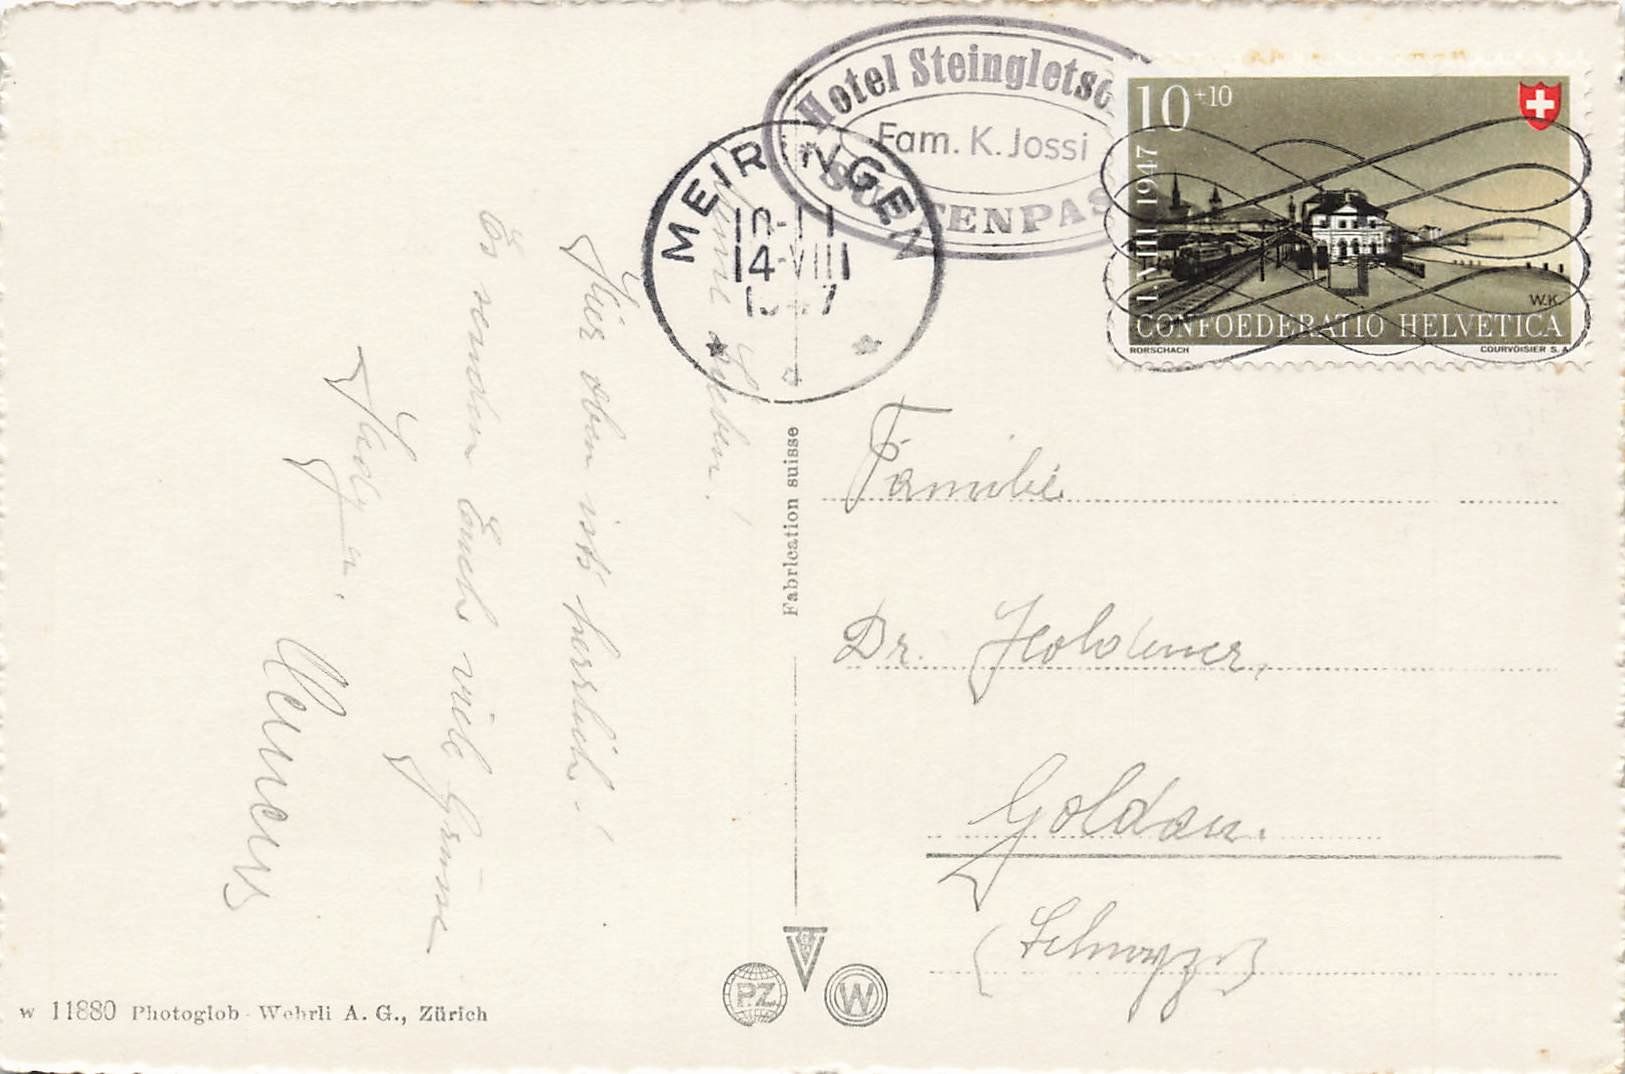 Hotel Steingletsc
Fam. K. Jossi
TENPAS
MEIRINGEN
10-11
14-VIII
1947
10+10
1. VIII 1947
W.K.
CONFOEDERATIO HELVETICA
RORSCHACH
COURVOISIER S. A
Meine Lieben!
Hier oben ists herrlich!
Es senden Euch viele Grüsse
Fabrication suisse
Familie
Dr. Holdener,
Goldau.
(Schwyz)
PZ
W
w 11880 Photoglob-Wehrli A. G., Zürich